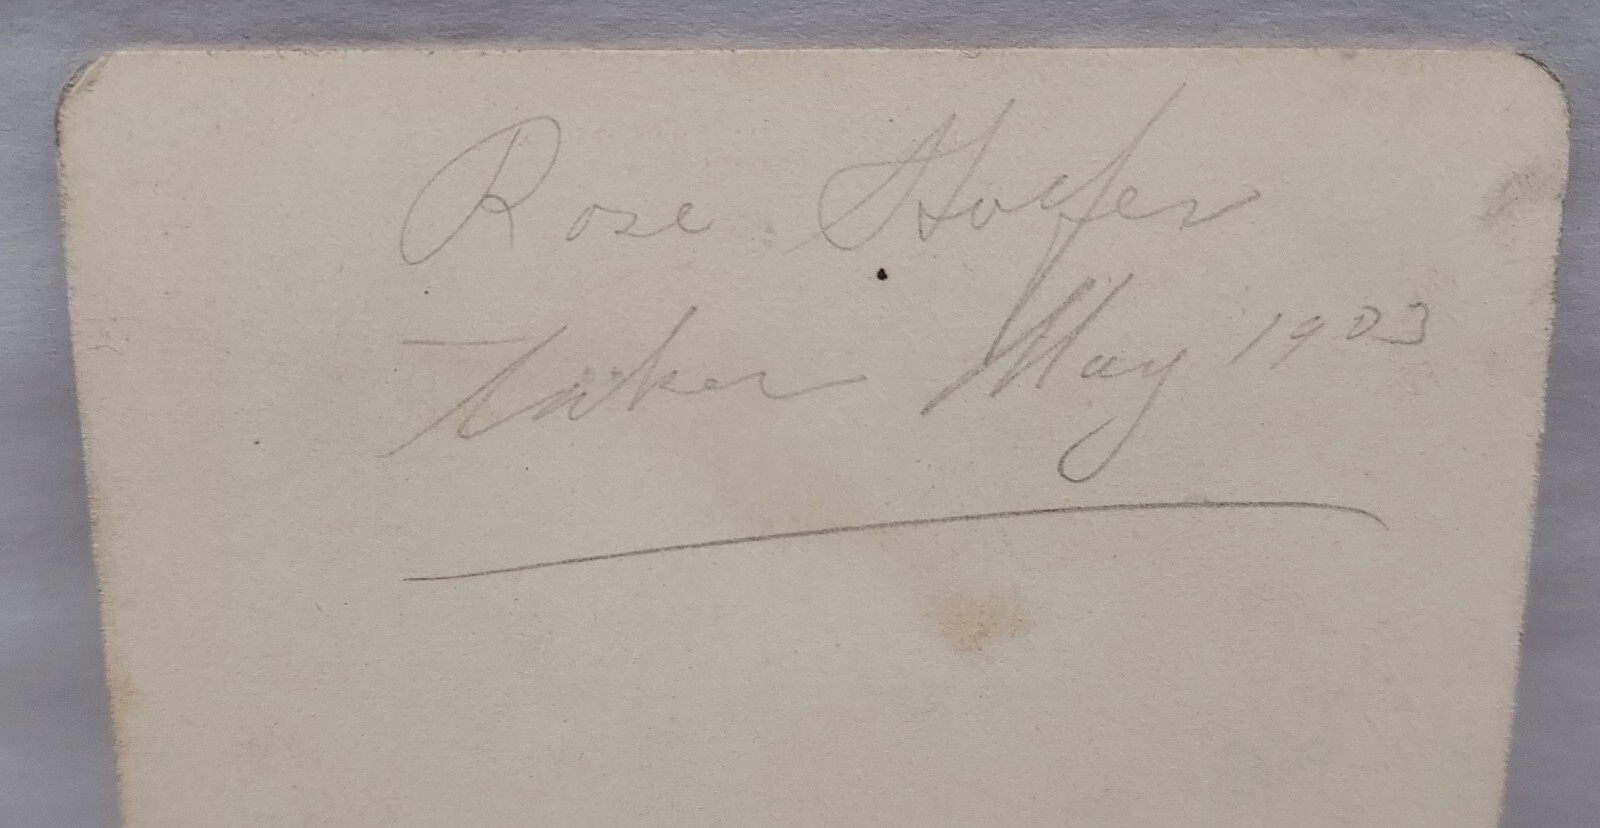 Rose Hoffer
Taken May 1903